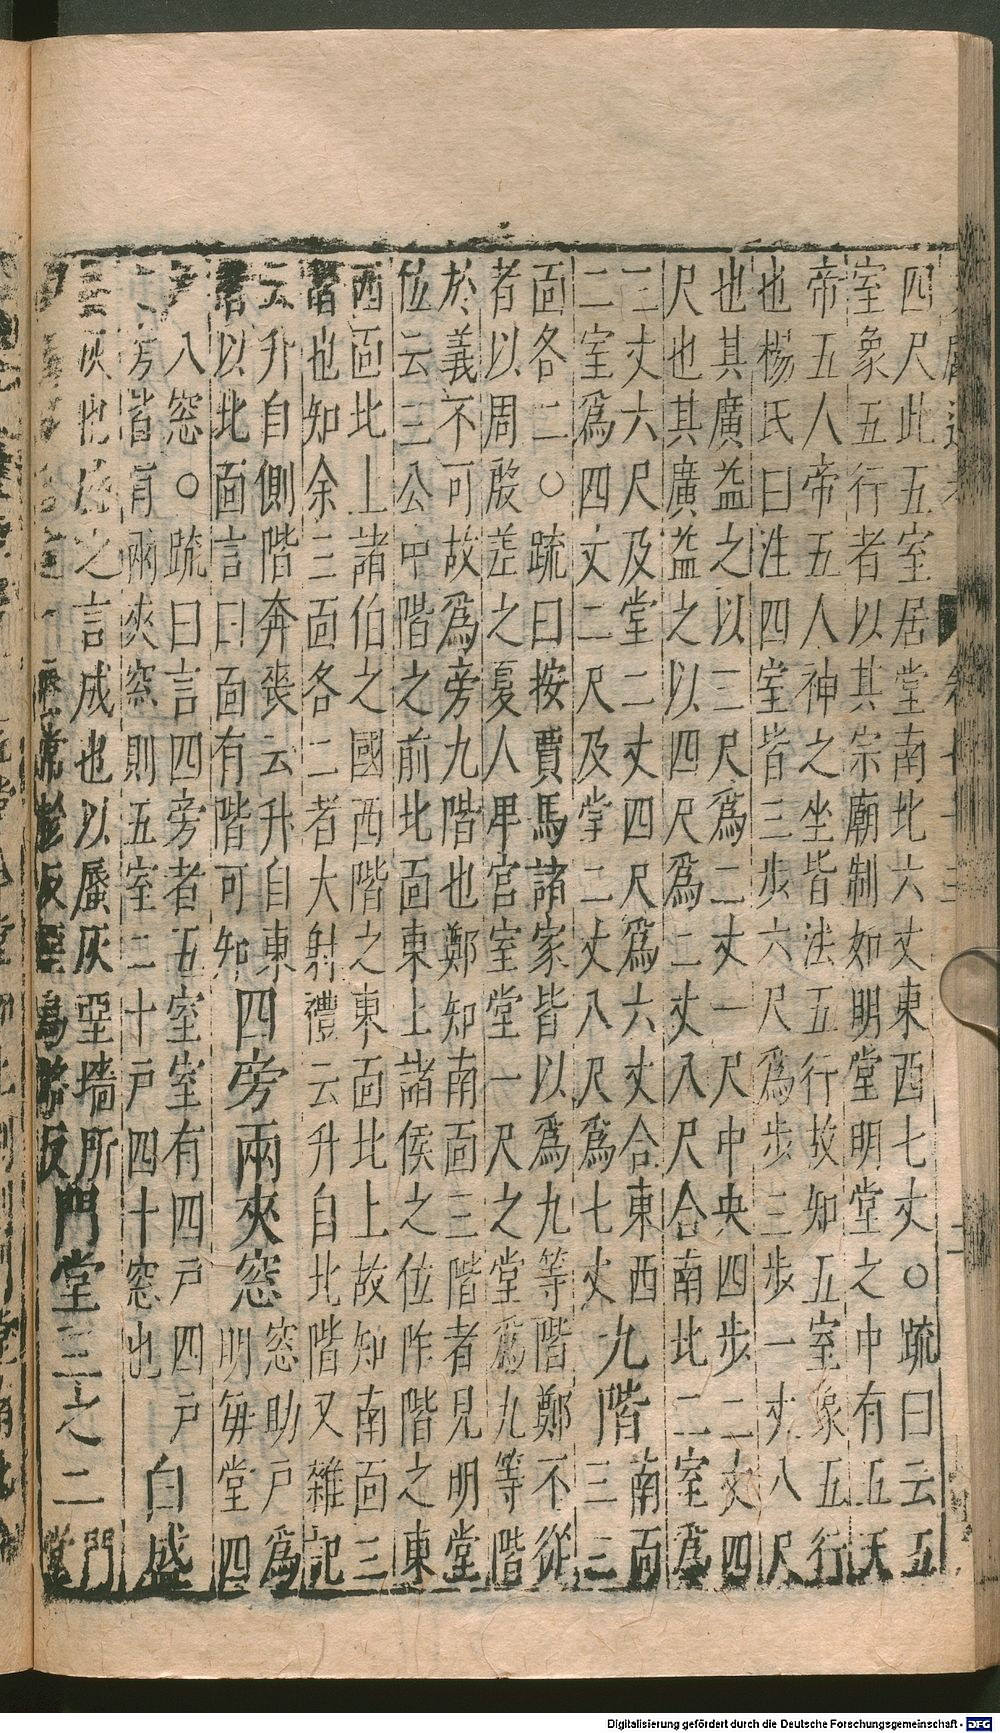 四尺此五室居堂南北六丈東西七丈○疏曰云五
室象五行者以其宗廟制如明堂明堂之中有五天
帝五人帝五人神之坐皆法五行故知五室象五行
也楊氏曰注四室皆三步六尺爲步三步一丈八尺
也其廣益之以三尺爲二丈一尺中央四步二丈四
尺也其廣益之以四尺爲二丈八尺合南北二室爲
三丈六尺及堂二丈四尺爲六丈合東西
二室爲四丈二尺及堂二丈八尺爲七丈
九階
南面
三
面各二○疏曰按賈馬諸家皆以爲九等階鄭不從
者以周殷差之夏人卑宮室堂一尺之堂爲九等階
於義不可故爲旁九階也鄭知南面三階者見明堂
位云三公中階之前北面東上諸侯之位阼階之東
西面北上諸伯之國西階之東面北上故知南面三
階也知余三面各二者大射禮云升自北階又雜記
云升自側階奔喪云升自東
者以北面言曰面有階可知
四旁兩夾窓
窓助戶爲
明每堂四
戶八窓○疏曰言四旁者五室室有四戶四戶
之旁皆有兩夾窓則五室二十戶四十窓也
白盛
蜃灰也盛之言成也以蜃灰堊墻所
蜃常軫反堊烏路反
門堂三之二
門
堂
Digitalisierung gefördert durch die Deutsche Forschungsgemeinschaft - DFG